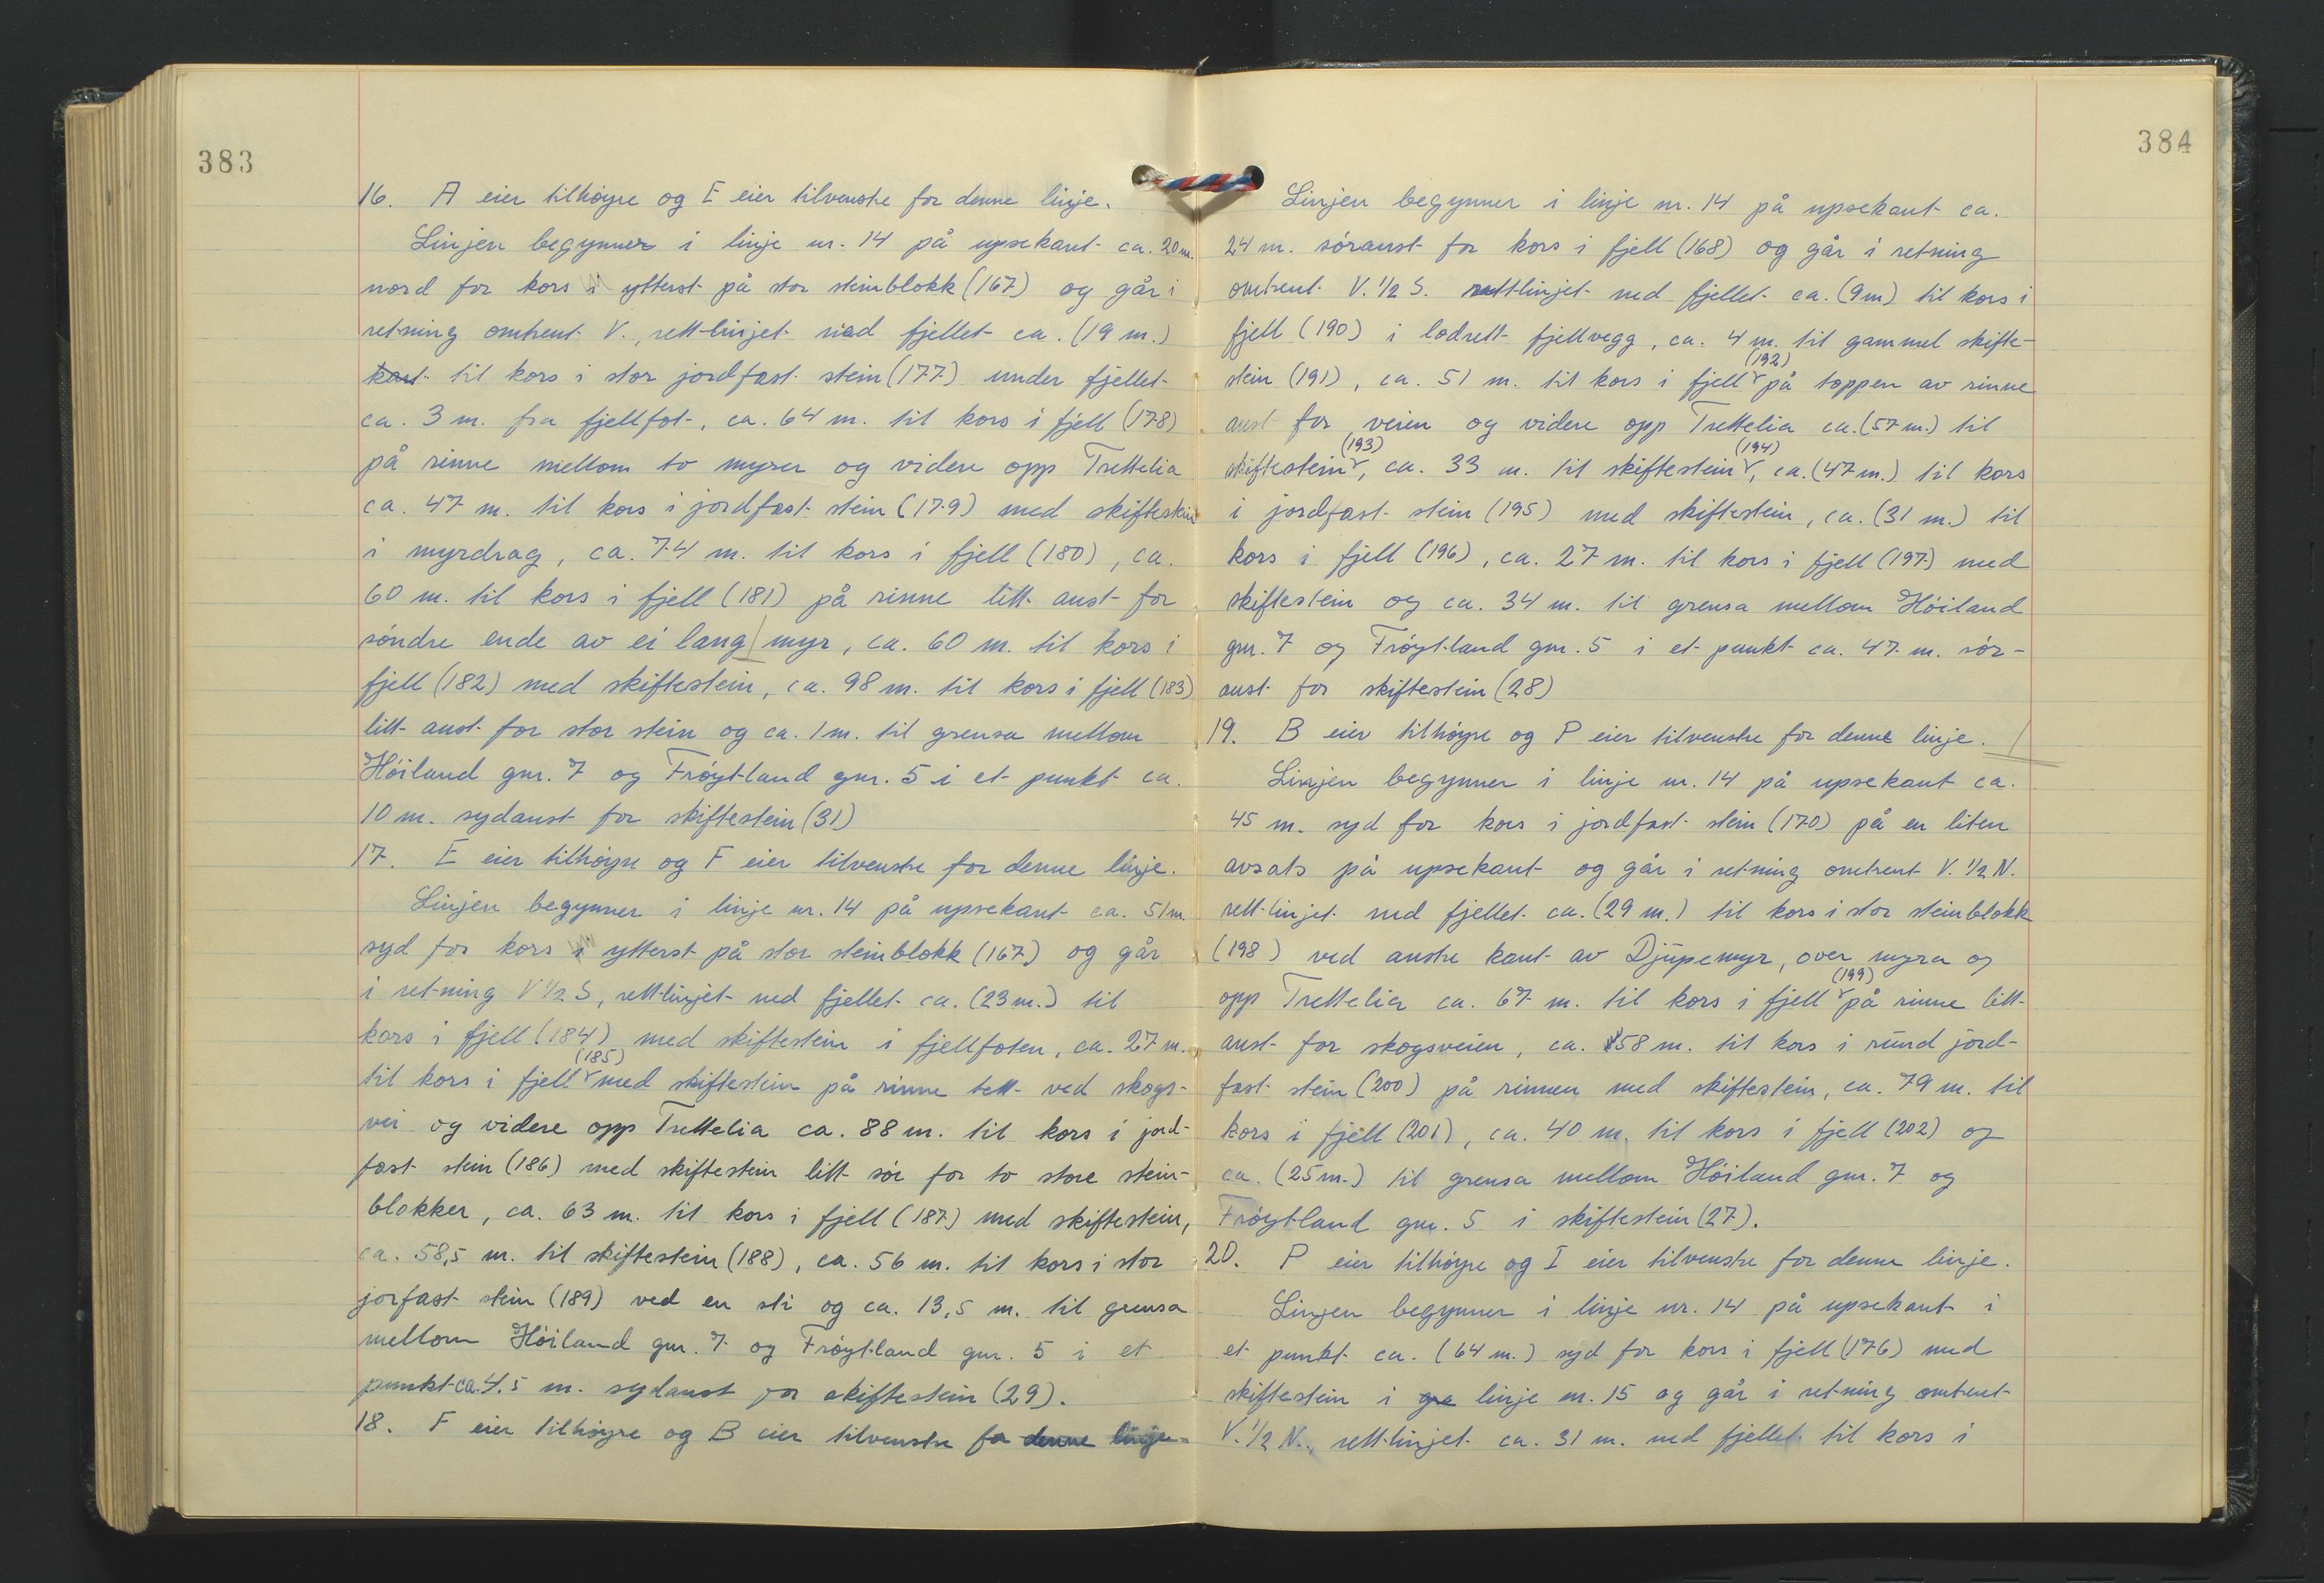 383
16. A eier tilhöyre og E eier tilvenstre for denne linje.
Linjen begynner i linje nr. 14 på upsekant ca. 20 m.
nord for kors i ytterst på stor steinblokk (167) og går i
retning omtrent V., rettlinjet ned fjellet ca. (19 m.)
kart til kors i stor jordfast stein (177) under fjellet
ca. 3 m. fra fjellfot, ca. 64 m. til kors i fjell (178)
på rinne mellom to myrer og videre opp Trettelia
ca. 47 m. til kors i jordfast stein (179) med skiftestein
i myrdrag, ca. 74 m. til kors i fjell (180), ca.
60 m. til kors i fjell (181) på rinne litt aust for
söndre ende av ei lang myr, ca. 60 m. til kors i
fjell (182) med skiftestein, ca. 98 m. til kors i fjell (183)
litt aust for stor stein og ca. 1 m. til grensa mellom
Höiland gnr. 7 og Fröytland gnr. 5 i et punkt ca.
10 m. sydaust for skiftestein (31)
17. E eier tilhöyre og F eier tilvenstre for denne linje.
Linjen begynner i linje nr. 14 på upsekant ca. 51 m
syd for kors i ytterst på stor steinblokk (167) og går
i retning V 1/2 S, rettlinjet ned fjellet ca. (23 m.) til
kors i fjell (184) med skiftestein i fjellfoten, ca. 27 m.
til kors i fjell (185) med skiftestein på rinne tett ved skogs-
vei og videre opp Trettelia ca. 88 m. til kors i jord-
fast stein (186) med skiftestein litt sör for to store stein-
blokker, ca. 63 m. til kors i fjell (187) med skiftestein,
ca. 58,5 m. til skiftestein (188), ca. 56 m. til kors i stor
jorfast stein (189) ved en sti og ca. 13,5 m. til grensa
mellom Höiland gnr. 7 og Fröytland gnr. 5 i et
punkt ca. 4.5 m. sydaust for skiftestein (29).
18. F eier tilhöyre og B eier tilvenstre for denne linje.
384
Linjen begynner i linje nr. 14 på upsekant ca.
24 m. söraust for kors i fjell (168) og går i retning
omtrent V. 1/2 S. rettlinjet ned fjellet ca. (9 m) til kors i
fjell (190) i lodrett fjellvegg, ca. 4 m. til gammel skifte-
stein (191), ca. 51 m. til kors i fjell (192) på toppen av rinne
aust for veien og videre opp Trettelia ca. (57 m.) til
skiftestein (193), ca. 33 m. til skiftestein (194), ca. (47 m.) til kors
i jordfast stein (195) med skiftestein, ca. (31 m.) til
kors i fjell (196), ca. 27 m. til kors i fjell (197) med
skiftestein og ca. 34 m. til grensa mellom Höiland
gnr. 7 og Fröytland gnr. 5 i et punkt ca. 47 m. sör-
aust for skiftestein (28)
19. B eier tilhöyre og P eier tilvenstre for denne linje.
Linjen begynner i linje nr. 14 på upsekant ca.
45 m. syd for kors i jordfast stein (170) på en liten
avsats på upsekant og går i retning omtrent V. 1/2 N.
rettlinjet ned fjellet ca. (29 m.) til kors i stor steinblokk
(198) ved austre kant av Djupemyr, over myra og
opp Trettelia ca. 67 m. til kors i fjell (199) på rinne litt
aust for skogsveien, ca. 58 m. til kors i rund jord-
fast stein (200) på rinnen med skiftestein, ca. 79 m. til
kors i fjell (201), ca. 40 m. til kors i fjell (202) og
ca. (25 m.) til grensa mellom Höiland gnr. 7 og
Fröytland gnr. 5 i skiftestein (27).
20. P eier tilhöyre og I eier tilvenstre for denne linje.
Linjen begynner i linje nr. 14 på upsekant i
et punkt ca. (64 m.) syd for kors i fjell (176) med
skiftestein i gre linje nr. 15 og går i retning omtrent
V. 1/2 N., rettlinjet ca. 31 m. ned fjellet til kors i